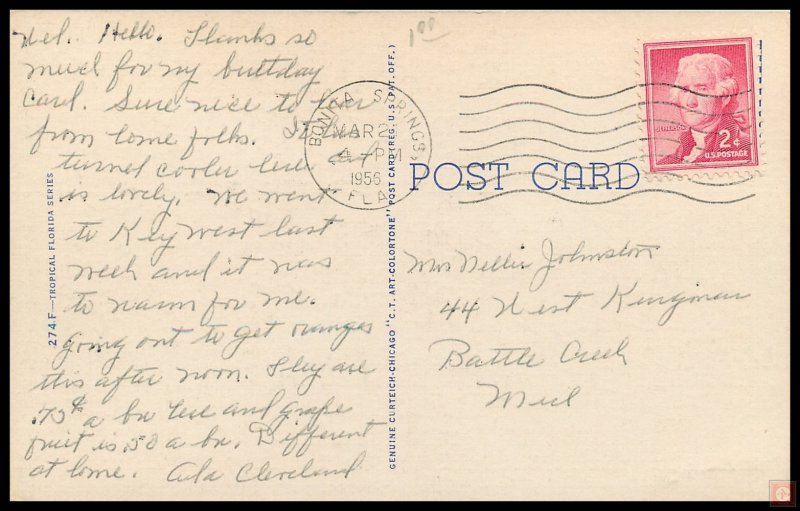 Wed. Hello. Thanks so
much for my birthday
Card. Sure nice to hear
from home folks. It has
turned cooler here
is lovely. We went
to Key West last
week and it was
to warm for me.
going out to get oranges
this after noon. They are
.75¢ a bu here and grape
fruit is .50 a bu. Different
at home. Ada Cleveland
274F—TROPICAL FLORIDA SERIES
GENUINE CURTEICH-CHICAGO "C.T. ART-COLORTONE" POST CARD (REG. U.S. PAT. OFF.)
1.00
BONITA SPRINGS,
MAR 2
PM
1956
FLA
JEFFERSON
2¢
U.S. POSTAGE
POST CARD
Mrs Nellie Johnston
44 West Kingman
Battle Creek
Mich